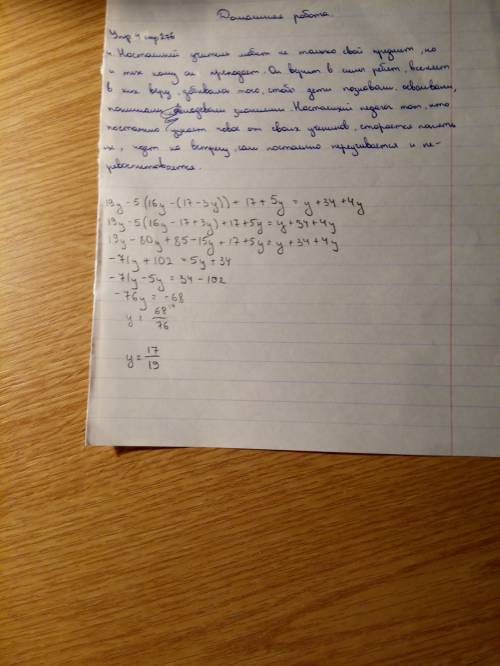 Домашняя работа.
Упр 4 стр 276
Настоящий учитель любит не только свой предмет, но
и тех кому он преподаёт. Он верит в силы ребят, вселяет
в них веру, добиваясь того, чтобы дети познавали, осваивали,
понимали, овладевали знаниями. Настоящий педагог тот, кто
постоянно узнает новое от своих учеников, старается понять
их, идет на встречу, сам постоянно переучивается и пе-
ревоспитовается.
19y - 5(16y - (17 - 3y)) + 17 + 5y = y + 34 + 4y
19y - 5(16y - 17 + 3y) + 17 + 5y = y + 34 + 4y
19y - 80y + 85 - 15y + 17 + 5y = y + 34 + 4y
-71y + 102 = 5y + 34
-71y - 5y = 34 - 102
-76y = -68
y = 68/76
y = 17/19